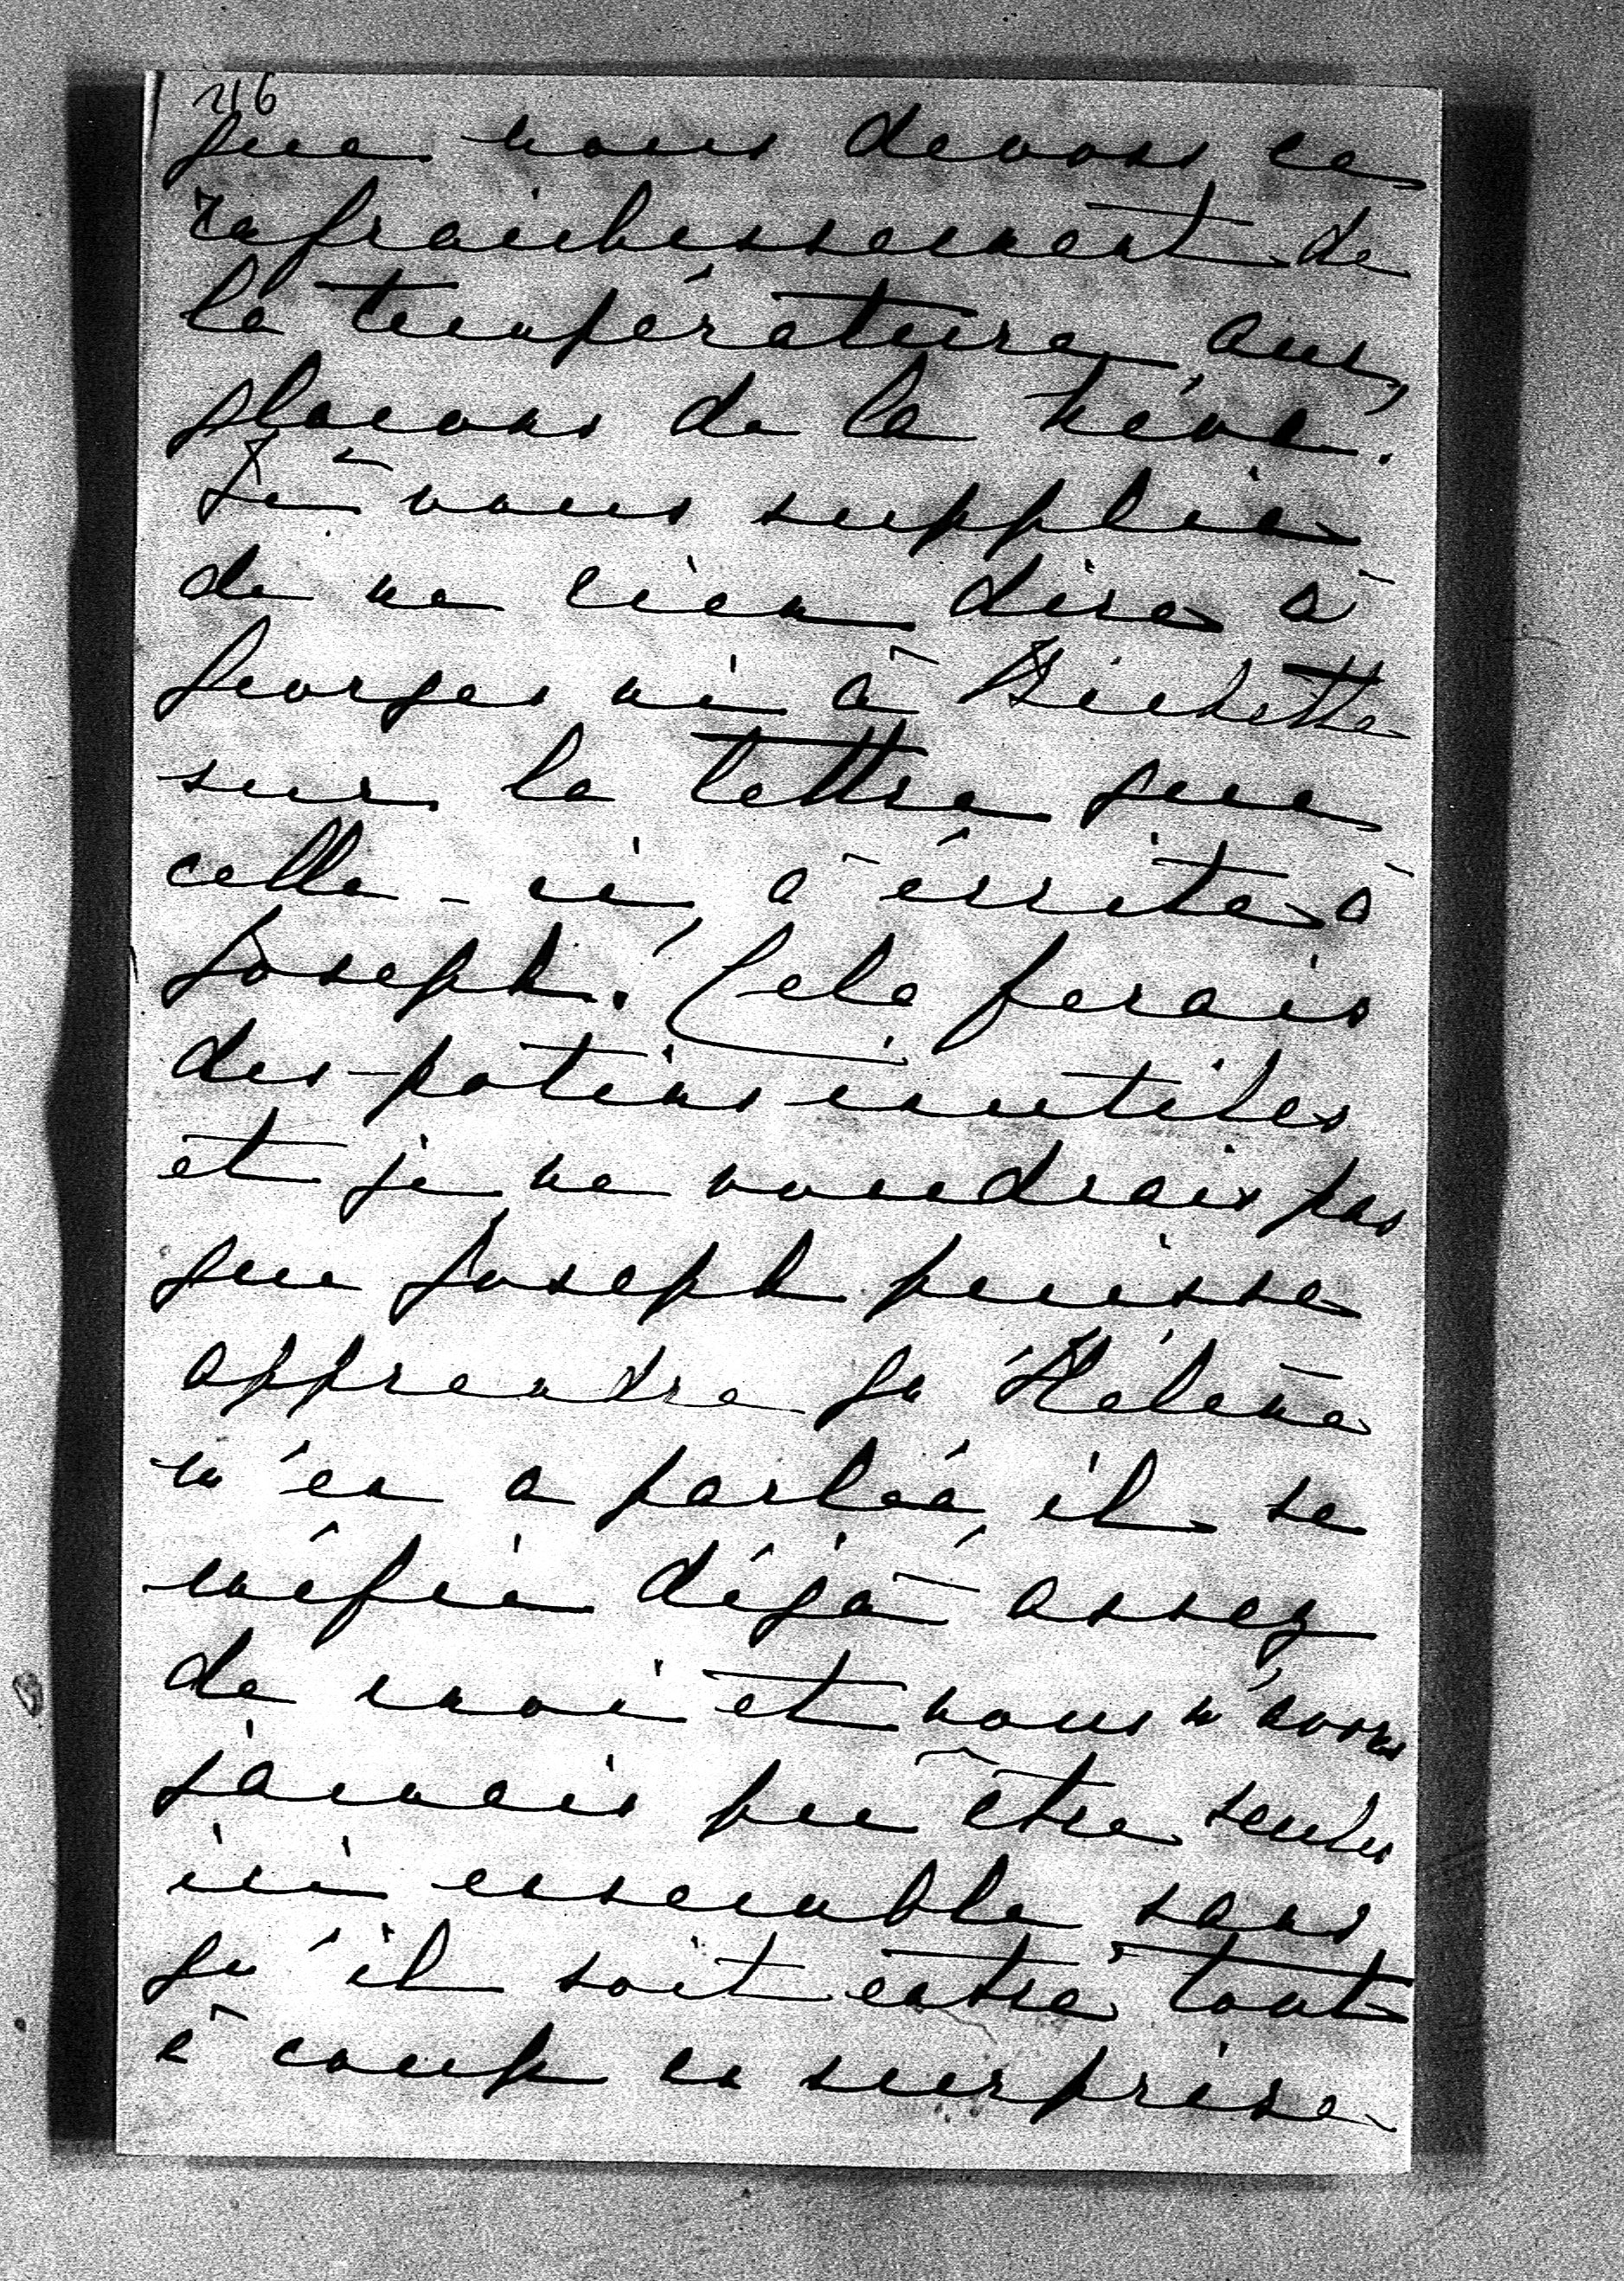 216
que nous devons ce
rafraichissement de
la température aux
glacons de la Néva.
Je vous supplie
de ne rien dire à
Georges ni à Bichette
sur la lettre que
celle-ci a écrite à
Joseph. Cela ferais
des potins inutiles
et je ne voudrais pas
que Joseph puisse
apprendre qu'Hélène
m'en a parlé, il se
méfie déjà assez
de moi et nous n'avons
jamais pu être seules
ici ensemble sans
qu'il soit entré tout
à coup en surprise